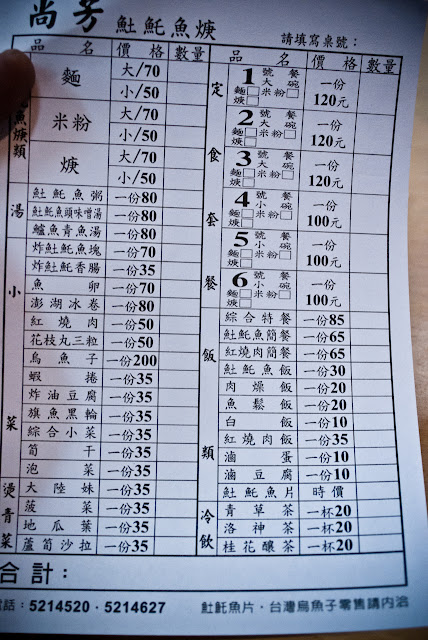 尚芳 䰾魠魚焿 請填寫桌號：
品名 價格 數量
魚焿類
麵 大/70
小/50
米粉 大/70
小/50
焿 大/70
小/50
湯
䰾魠魚粥 一份80
䰾魠魚頭味噌湯 一份80
鱸魚青魚湯 一份80
小菜
炸䰾魠魚塊 一份70
炸䰾魠香腸 一份35
魚卵 一份70
澎湖冰卷 一份80
紅燒肉 一份50
花枝丸三粒 一份50
烏魚子 一份200
蝦捲 一份35
炸油豆腐 一份35
旗魚黑輪 一份35
綜合小菜 一份35
筍干 一份35
泡菜 一份35
燙青菜
大陸妹 一份35
菠菜 一份35
地瓜葉 一份35
蘆筍沙拉 一份35
品名 價格 數量
定食套餐
1號餐 大碗 麵□米粉□焿□ 一份120元
2號餐 大碗 麵□米粉□焿□ 一份120元
3號餐 大碗 麵□米粉□焿□ 一份120元
4號餐 小碗 麵□米粉□焿□ 一份100元
5號餐 小碗 麵□米粉□焿□ 一份100元
6號餐 小碗 麵□米粉□焿□ 一份100元
飯類
綜合特餐 一份85
䰾魠魚簡餐 一份65
紅燒肉簡餐 一份65
䰾魠魚飯 一份30
肉燥飯 一份20
魚鬆飯 一份20
白飯 一份10
紅燒肉飯 一份35
滷蛋 一份10
滷豆腐 一份10
䰾魠魚片 時價
冷飲
青草茶 一杯20
洛神茶 一杯20
桂花釀茶 一杯20
合計：
電話：5214520·5214627 䰾魠魚片·台灣烏魚子零售請內洽